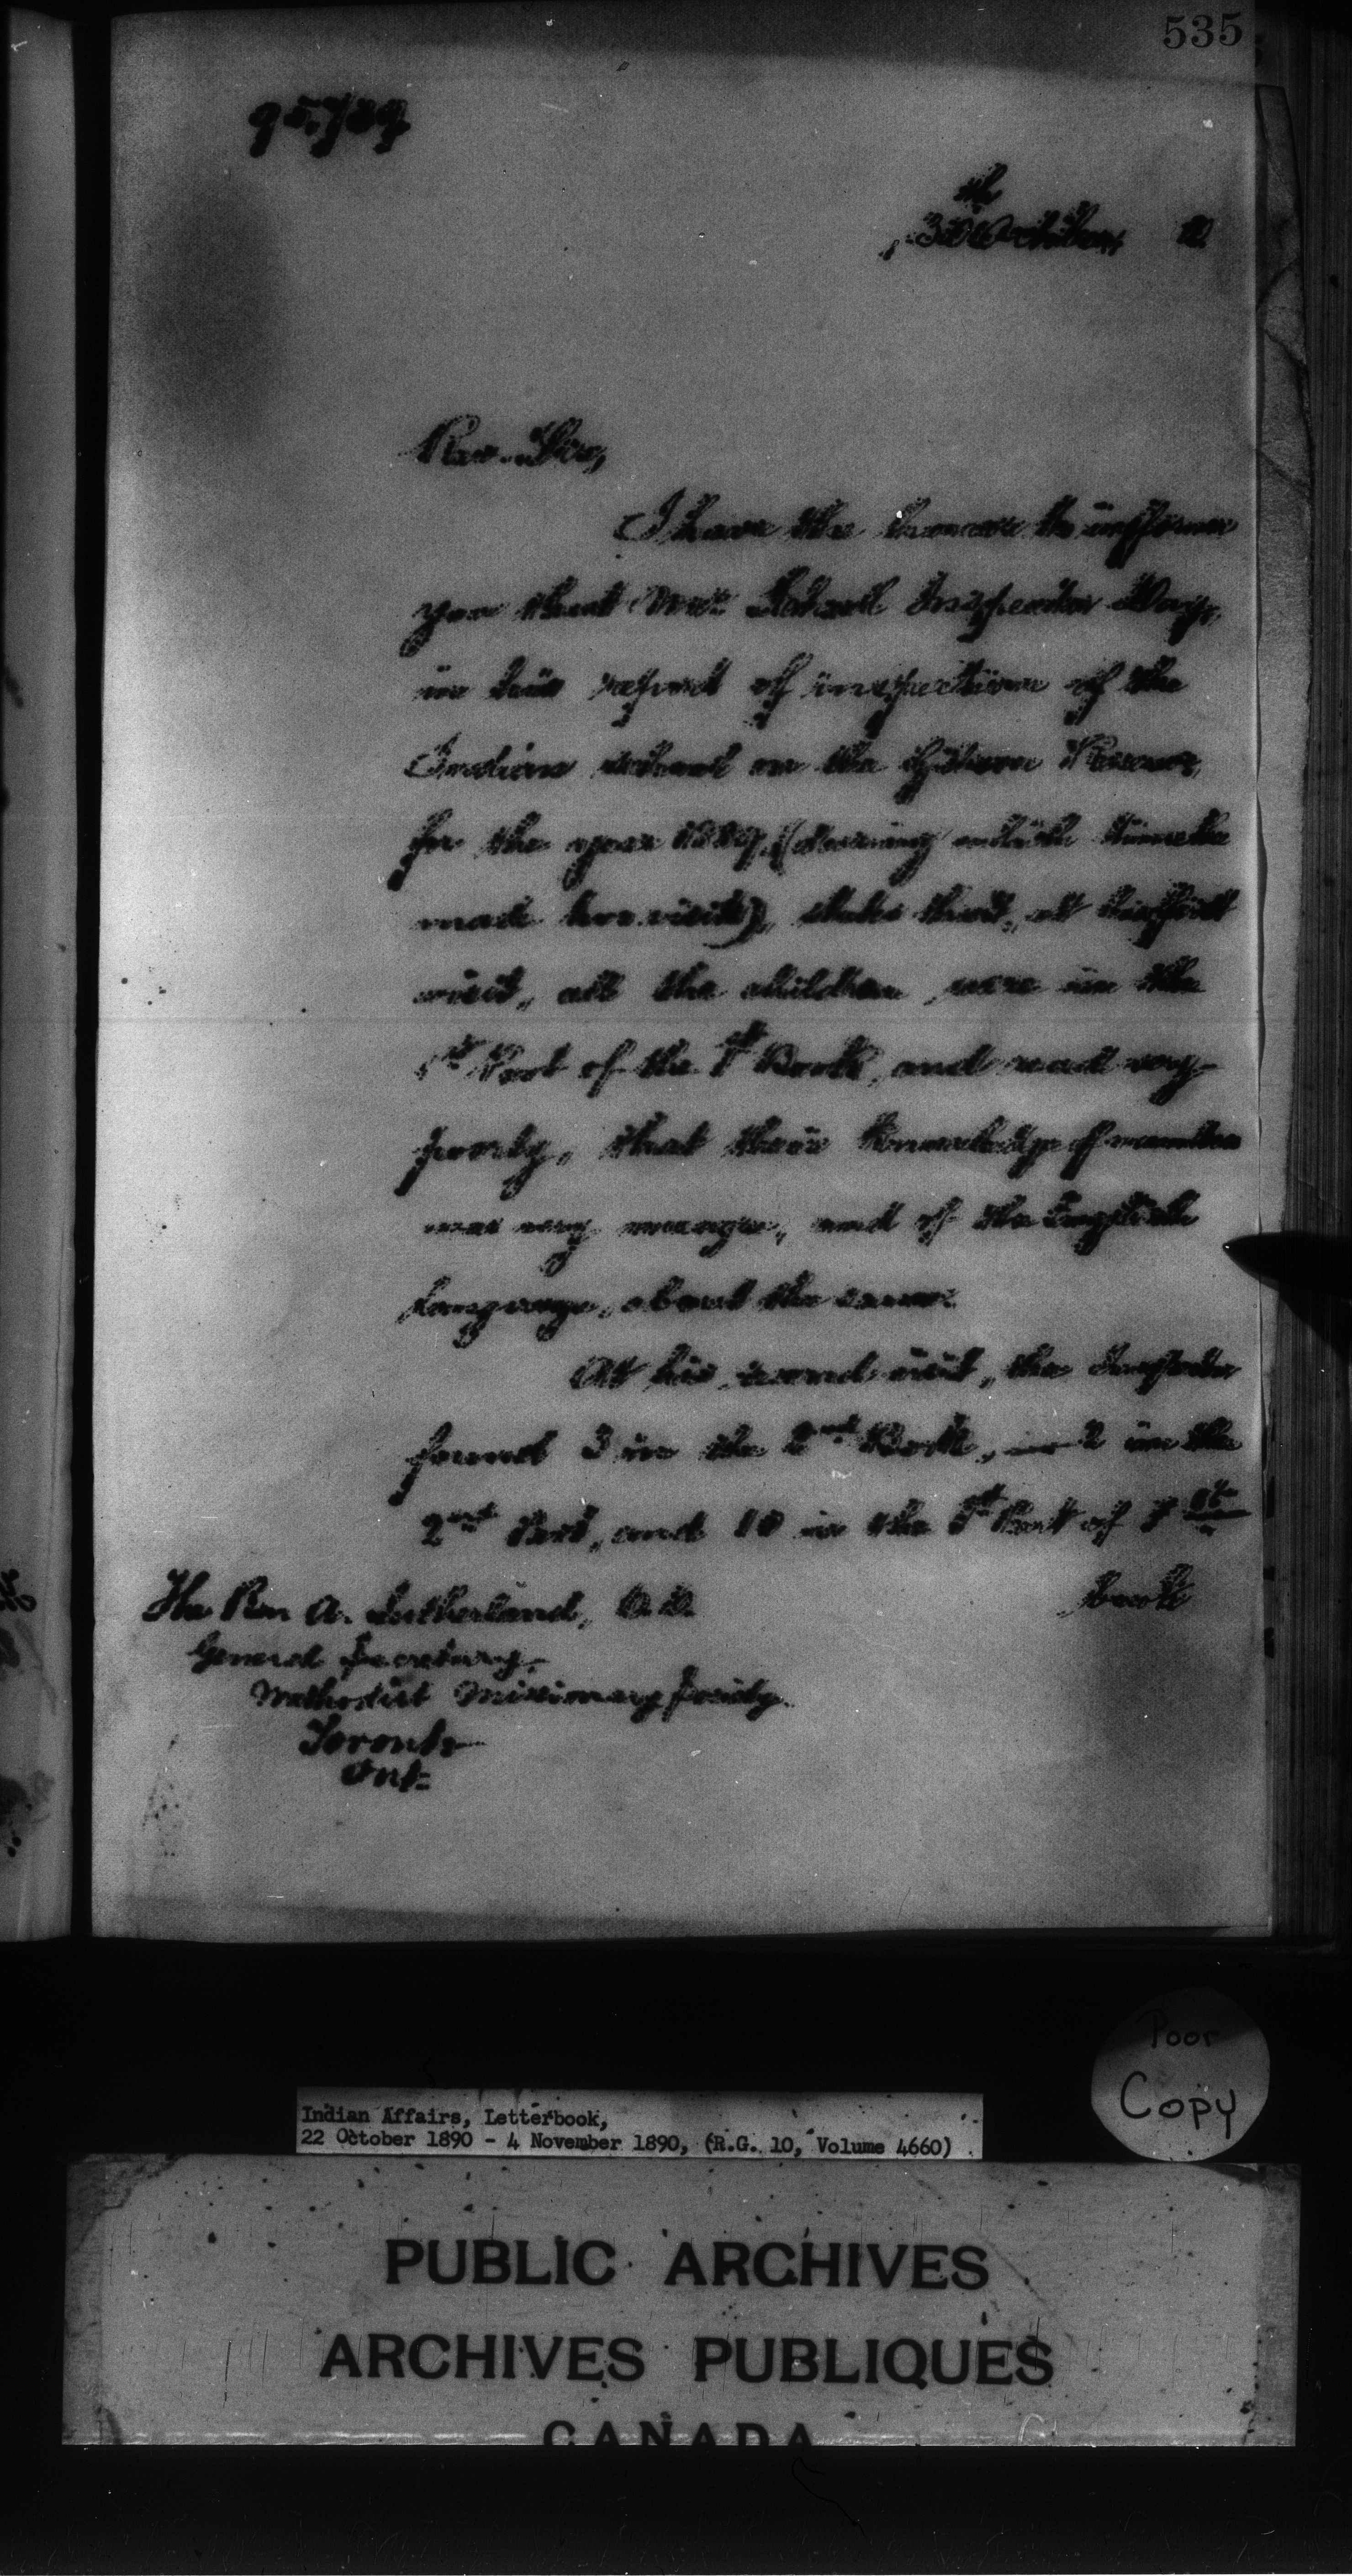 535
95,789
30th October 90
Rev. Sir,
I have the honour to inform
you that Mr. School Inspector Day,
in his report of inspection of the
Indian school on the Reserve,
for the year 1889, (during which time he
made two visits), states that, at his first
visit, all the children were in the
1st Part of the 1st Book, and read very
poorly, that their knowledge of numbers
was very meagre, and of the English
language, about the same.
At his second visit, the Inspector
found 3 in the 2nd Book, 2 in the
2nd Part, and 10 in the 1st Part of 1st
book
The Rev A. Sutherland, D.D.
General Secretary,
Methodist Missionary Society.
Toronto
Ont.
Poor
Copy
Indian Affairs, Letterbook,
22 October 1890 - 4 November 1890, (R.G. 10, Volume 4660)
PUBLIC ARCHIVES
ARCHIVES PUBLIQUES
CANADA